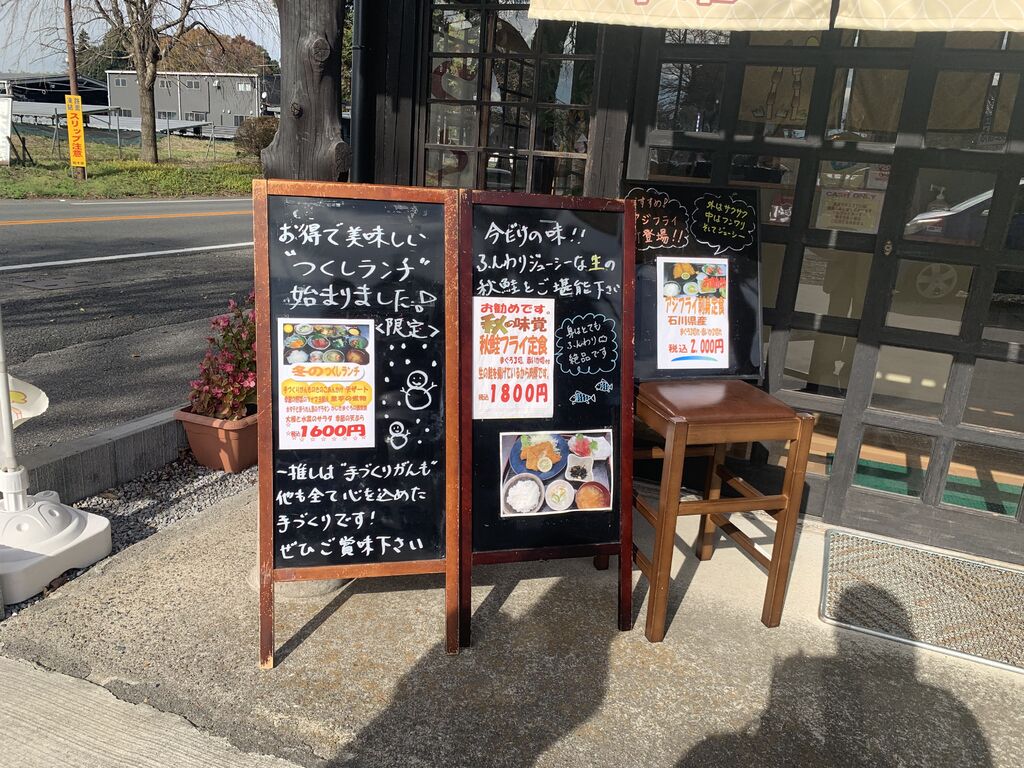 お得で美味しい
"つくしランチ"
始まりました
<限定>
冬のつくしランチ
税込1600円
一推しは"手づくりがんも"
他も全て心を込めた
手づくりです!
ぜひご賞味下さい
今だけの味!!
ふんわりジューシーな生の
秋鮭をご堪能下さい
お勧めです。
秋の味覚
秋鮭フライ定食
生の鮭を揚げているから肉厚です。
1800円
身はとても
ふんわり
絶品です
アジフライ
登場!!
外はサクサク
中はフンワリ
そしてジューシー
アジフライ刺身定食
石川県産
税込 2.000円
スリップ注意
CASH ONLY